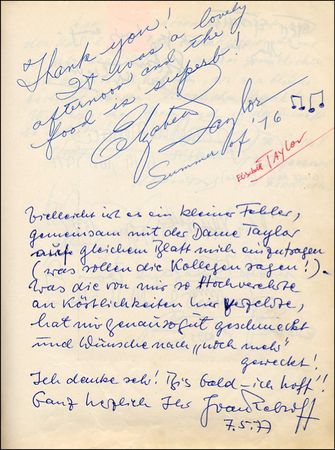 Thank you!
It was a lovely
afternoon and the
food is superb!
Elizabeth Taylor
Summer of '76
Elizabeth Taylor
Vielleicht ist es ein kleiner Fehler,
gemeinsam mit der Dame Taylor
auf gleichem Blatt mich einzutragen
(was sollen die Kollegen sagen!).
Was die von mir so Hochverehrte
an Köstlichkeiten hier verzehrte,
hat mir genausogut geschmeckt
und Wünsche nach "noch mehr"
geweckt!
Ich danke sehr! Bis bald - ich hoff'!!
Ganz herzlich Ihr Ivan Rebroff
7.5.77